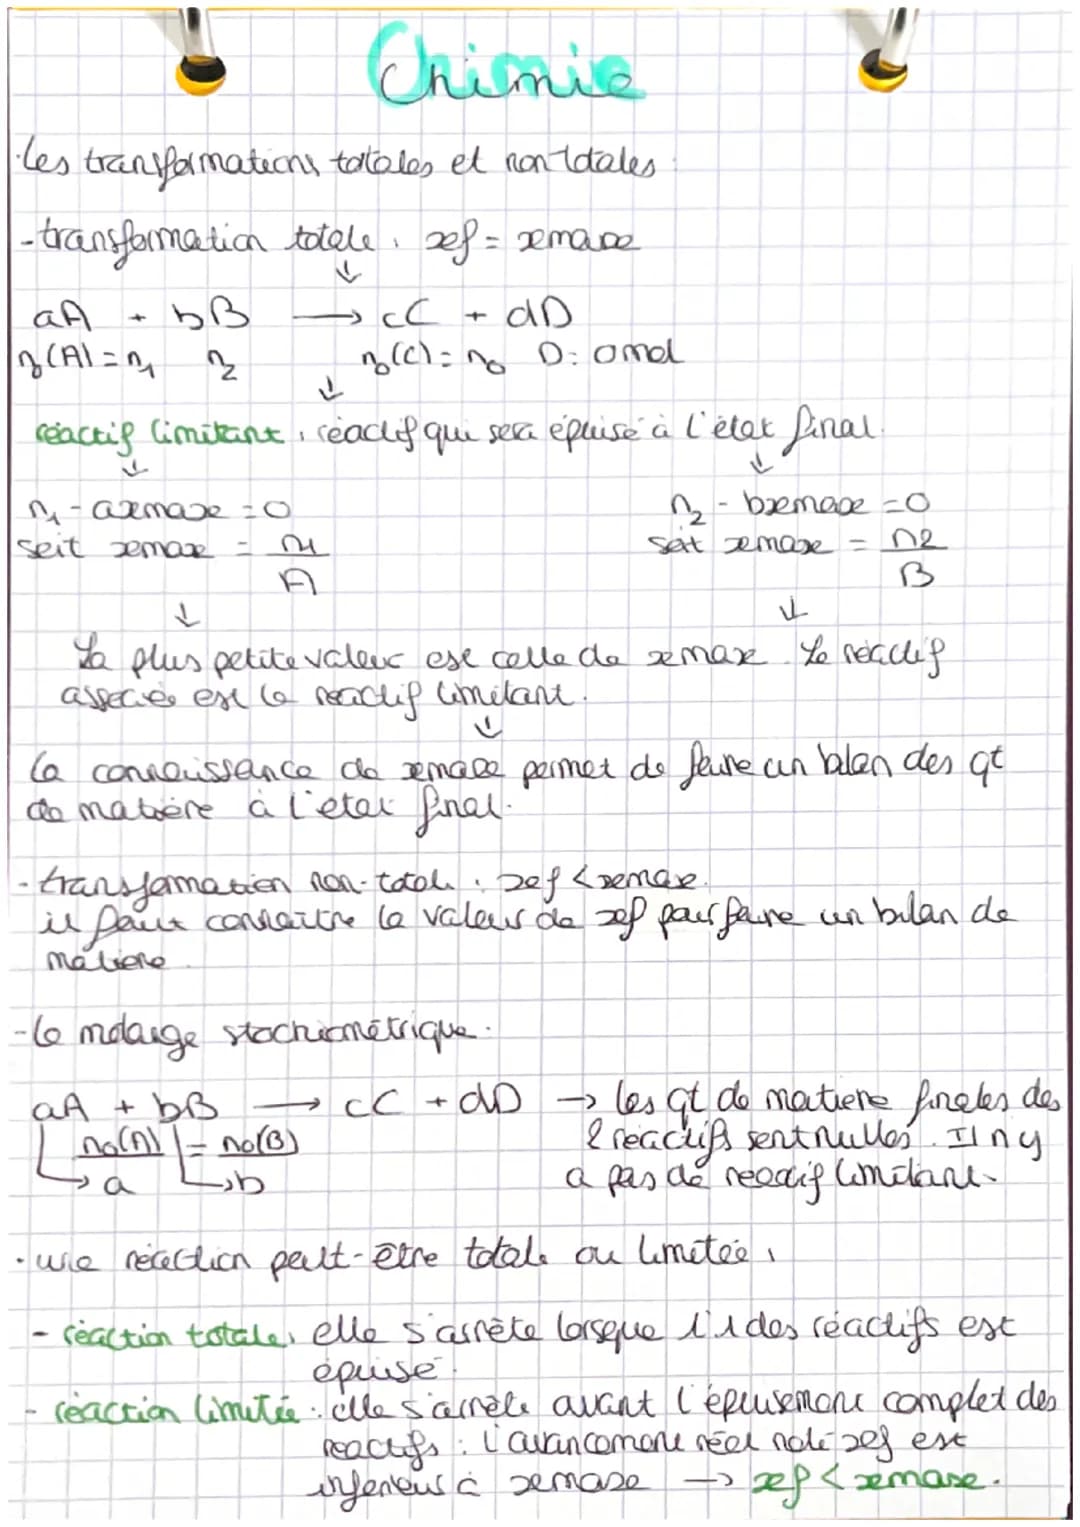 Chimie
·les transformations totales et non totales :
- transformation totale : xf = xmax
↓
aA + bB → cC + dD
n₀(A) = n₁ n₂ n₀(C) = n₀ D : 0mol
↓
réactif limitant : réactif qui sera épuisé à l'état final.
↓ ↓
n₁ - axmax = 0 n₂ - bxmax = 0
soit xmax = n1/A soit xmax = n2/B
↓ ↓
La plus petite valeur est celle de xmax. Le réactif
associée est le réactif limitant.
↓
la connaissance de xmax permet de faire un bilan des qt
de matière à l'état final.
- transformation non-totale : xf < xmax.
il faut connaître la valeur de xf pour faire un bilan de
matière.
- le mélange stochiométrique :
aA + bB → cC + dD → les qt de matiere finales des
n₀(A) = n₀(B) 2 réactifs sont nulles. Il n y
→ a → b a pas de réactif limitant.
· une réaction peut-être totale ou limitée :
- réaction totale : elle s'arrête lorsque l'1 des réactifs est
épuisé.
- réaction limitée : elle s'arrête avant l'épuisement complet des
réactifs : l'avancement réel noté xf est
inférieur à xmax → xf < xmax.